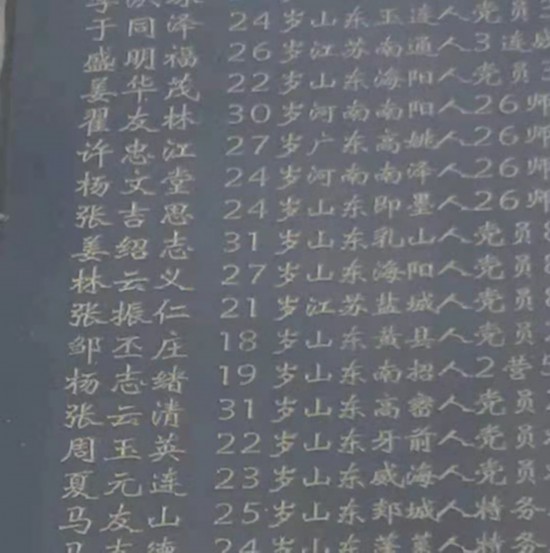 于同泽 24岁山东玉连人党员
盛明福 26岁江苏南通人3连
姜华茂 22岁山东海阳人党员
翟友林 30岁河南南阳人26师
许忠江 27岁广东高姚人26师
杨文堂 24岁河南南泽人26师
张吉思 24岁山东即墨人26师
姜绍志 31岁山东乳山人党员
林云义 27岁山东海阳人党员
张振仁 21岁江苏盐城人党员
邹丕庄 18岁山东黄县人党员
杨志绪 19岁山东南招人2营
张云清 31岁山东高密人党员
周玉英 22岁山东牙前人党员
夏元连 23岁山东威海人党员
马友山 25岁山东郯城人特务
德 24岁山东蓬莱人特务